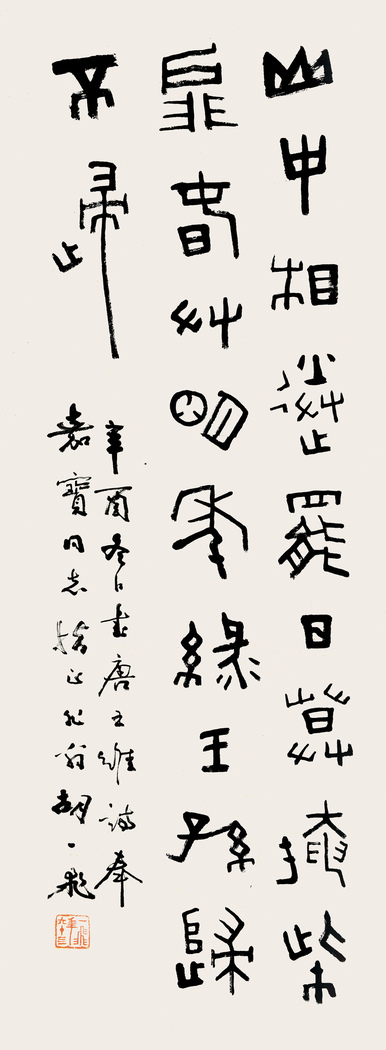 山中相送罷日暮掩柴
扉春草明年綠王孫歸
不歸
辛酉冬日書唐王維詩奉
嘉寶同志指正 翁胡一飛